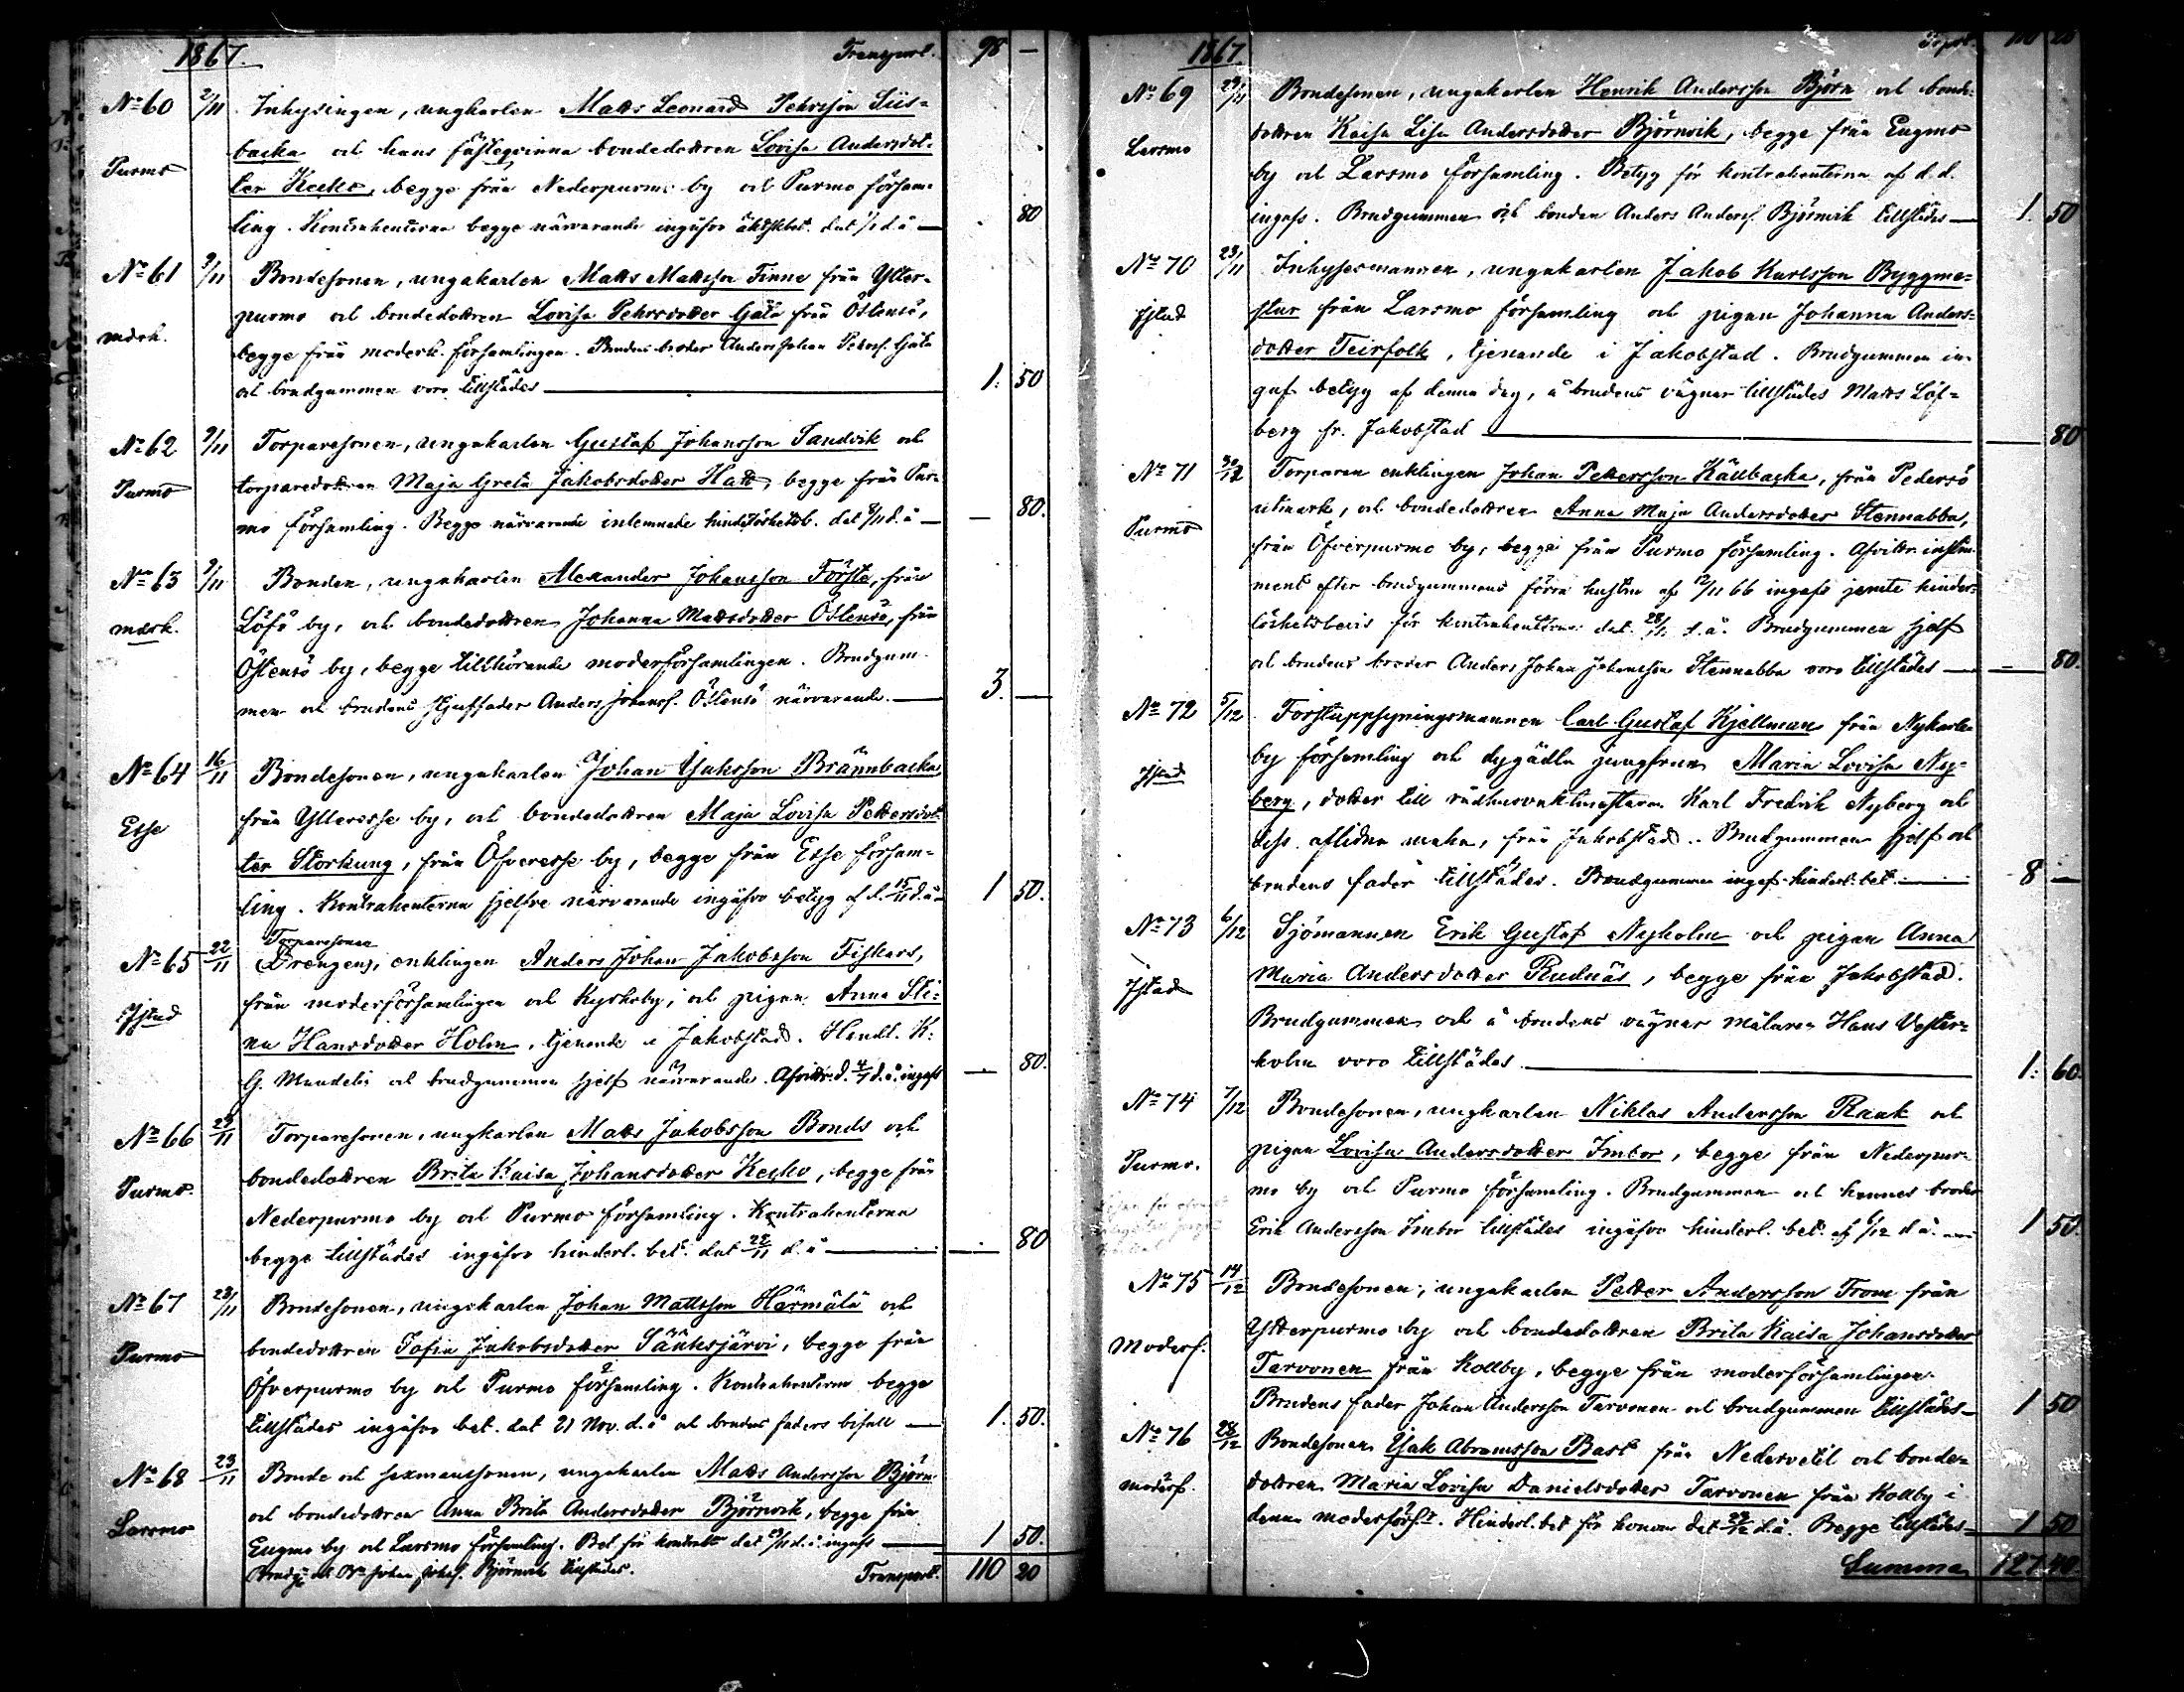 1867. Transport. 98 —
No 60 2/11 Inhysingen, ungkarlen Matts Leonard Pehrsson Siis-
backa och hans fästeqvinna bondedottren Lovisa Andersdot-
Purmo
ter Kecko, begge från Nederpurmo by och Purmo försam-
ling. Kontrahenterna begge närvarande ingåfvo dat 1/11 d.å — 80
No 61 9/11 Bondesonen, ungakarlen Matts Mattsson Finne från Ytter-
purmo och bondedottren Lovisa Pehrsdotter Gäta från Östensö,
mdrk.
begge från moderk. församlingen. Brudens broder Anders Johan Pehrs. Gäta
och brudgummen voro tillstädes — 1. 50
No 62 9/11 Torparesonen, ungakarlen Gustaf Johansson Sandvik och
Purmo torparedottren Maja Greta Jakobsdotter Hatt, begge från Pur-
mo församling. Begge närvarande inlemnade hinderlöshetsb. dat 8/11 d.å — 80.
No 63 9/11 Bonden, ungakarlen Alexander Johansson Förste, från
mdrk. Löfö by, och bondedottren Johanna Mattsdotter Östensö, från
Östensö by, begge tillhörande moderförsamlingen. Brudgum-
men och brudens stjuffader Anders Johanss. Östensö närvarande. — 3. —
No 64 16/11 Bondesonen, ungakarlen Johan Isaksson Brännbacka
Esse från Ytteresse by, och bondedottren Maja Lovisa Pettersdot-
ter Storkung, från Öfveresse by, begge från Esse försam-
ling. Kontrahenterna sjelfve närvarande ingåfvo betyg af d. 15/11 d.å 1 50.
Torparesonen
No 65 22/11 (Drengen), enklingen Anders Johan Jakobsson Fiskars,
från moderförsamlingen och Kyrkoby, och pigan Anna Sti-
Jstad
na Hansdotter Holm, tjenande i Jakobstad. Handl. K:
G. Mandelin och brudgummen sjelf närvarande. Afvittr. d. 4/7 d.å. ingafs — 80.
No 66 23/11 Torparesonen, ungkarlen Matts Jakobsson Bonds och
Purmo. bondedottren Brita Kaisa Johansdotter Kecko, begge från
Nederpurmo by och Purmo församling. Kontrahenterna
begge tillstädes ingåfvo hinderl. bet. dat 22/11 d.å — 80
No 67 23/11 Bondesonen, ungakarlen Johan Mattsson Härmälä och
Purmo bondedottren Sofia Jakobsdotter Sääksjärvi, begge från
Öfverpurmo by och Purmo församling. Kontrahenterna begge
tillstädes ingåfvo bet. dat 21 Nov. d.å och brudens faders bifall — 1. 50.
No 68 23/11 Bonde och sexmanssonen, ungakarlen Matts Andersson Björn
Larsmo och bondedottren Anna Brita Andersdotter Björnvik, begge från
Eugmo by och Larsmo församling. Bet för kontrah. dat 23/11 d.å ingafs — 1 50.
Brudg. och Johan Johs. Björnvik tillstädes. Transport. 110 20
1867. Trpt. 110 20
No 69 23/11 Bondesonen, ungakarlen Henrik Andersson Björn och bonde-
Larsmo dottren Kaisa Lisa Andersdotter Björnvik, begge från Eugmo
by och Larsmo församling. Betyg för kontrahenterna af d.d.
ingafs. Brudgummen och bonden Anders Anderss. Björnvik tillstädes — 1. 50
No 70 23/11 Inhysesmannen, ungakarlen Jakob Karlsson Byggmä-
Jstad star från Larsmo församling och pigan Johanna Anders-
dotter Teirfolk, tjenande i Jakobstad. Brudgummen in-
gaf betyg af denna dag, å brudens vägnar tillstädes Matts Löf-
berg fr. Jakobstad — 80
No 71 30/12 Torparen enklingen Johan Pettersson Källbacka, från Pedersö
Purmo utmark, och bondedottren Anna Maja Andersdotter Stennabba,
från Öfverpurmo by, begge från Purmo församling. Afvittr. instru-
ment efter brudgummens förra hustru af 12/11 66 ingafs jemte hinder-
löshetsbevis för kontrahenterna dat. 28/11 d.å. Brudgummen sjelf
och brudens broder Anders Johan Johansson Stennabba voro tillstädes — 80.
No 72 5/12 Forstuppsyningsmannen Carl Gustaf Kjellman från Nykarle-
Jstad by församling och dygädla jungfrun Maria Lovisa Ny-
berg, dotter till rådhusvaktmästaren Karl Fredrik Nyberg och
dess aflidna maka, från Jakobstad. Brudgummen sjelf och
brudens fader tillstädes. Brudgummen ingaf hinderl. bet. — 8 —
No 73 6/12 Sjömannen Erik Gustaf Nyholm och pigan Anna
Jstad Maria Andersdotter Rudnäs, begge från Jakobstad.
Brudgummen och å brudens vägnar målaren Hans Vester-
holm voro tillstädes. — 1. 60.
No 74 7/12 Bondesonen, ungkarlen Niklas Andersson Rank och
Purmo. pigan Lovisa Andersdotter Imbor, begge från Nederpur-
mo by och Purmo församling. Brudgummen och hennes broder
Erik Andersson Imbor tillstädes ingåfvo hinderl. bet. af 6/12 d.å. — 1 50.
No 75 14/12 Bondesonen, ungakarlen Petter Andersson From från
Moderf. Ytterpurmo by och bondedottren Brita Kaisa Johansdotter
Tarvonen från Kollby, begge från moderförsamlingen.
Brudens fader Johan Andersson Tarvonen och brudgummen tillstädes — 1 50
No 76 28/12 Bondesonen Isak Abramsson Bast från Nedervetil och bonde-
moderf. dottren Maria Lovisa Danielsdotter Tarvonen från Kollby i
denna moderförs. Hinderl. bet för honom dat 27/12 d.å. Begge tillstädes — 1 50
Summa 127 40.